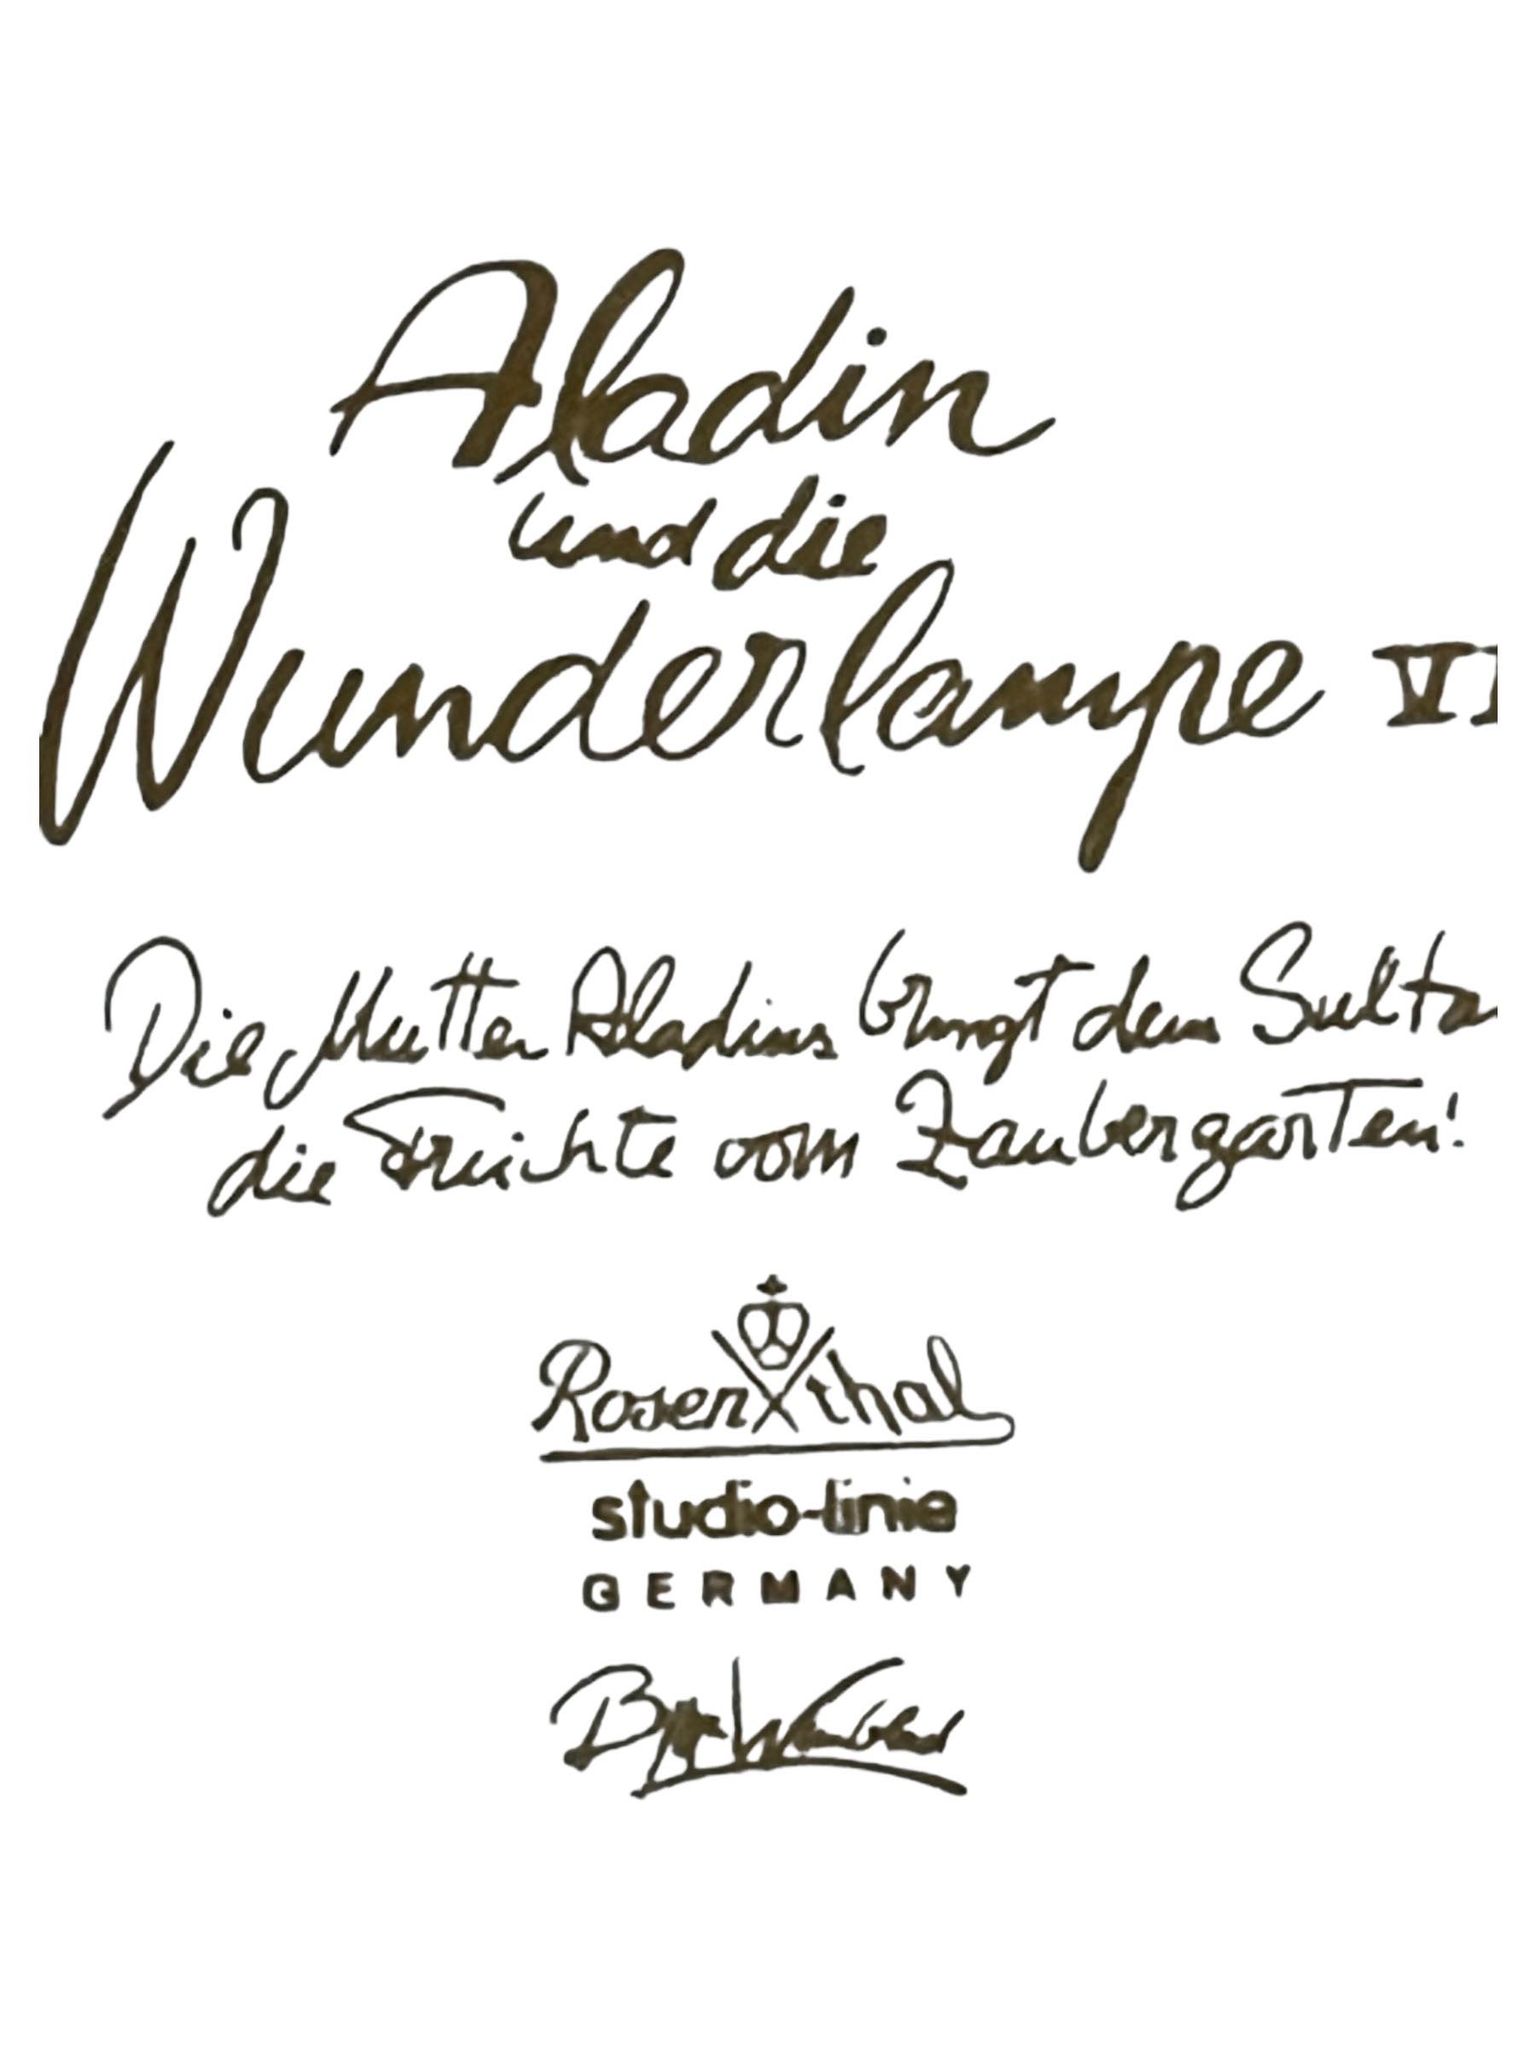 Aladin
und die
Wunderlampe VI
Die Mutter Aladins bringt dem Sulta
die Früchte vom Zaubergarten!
Rosenthal
studio-linie
GERMANY